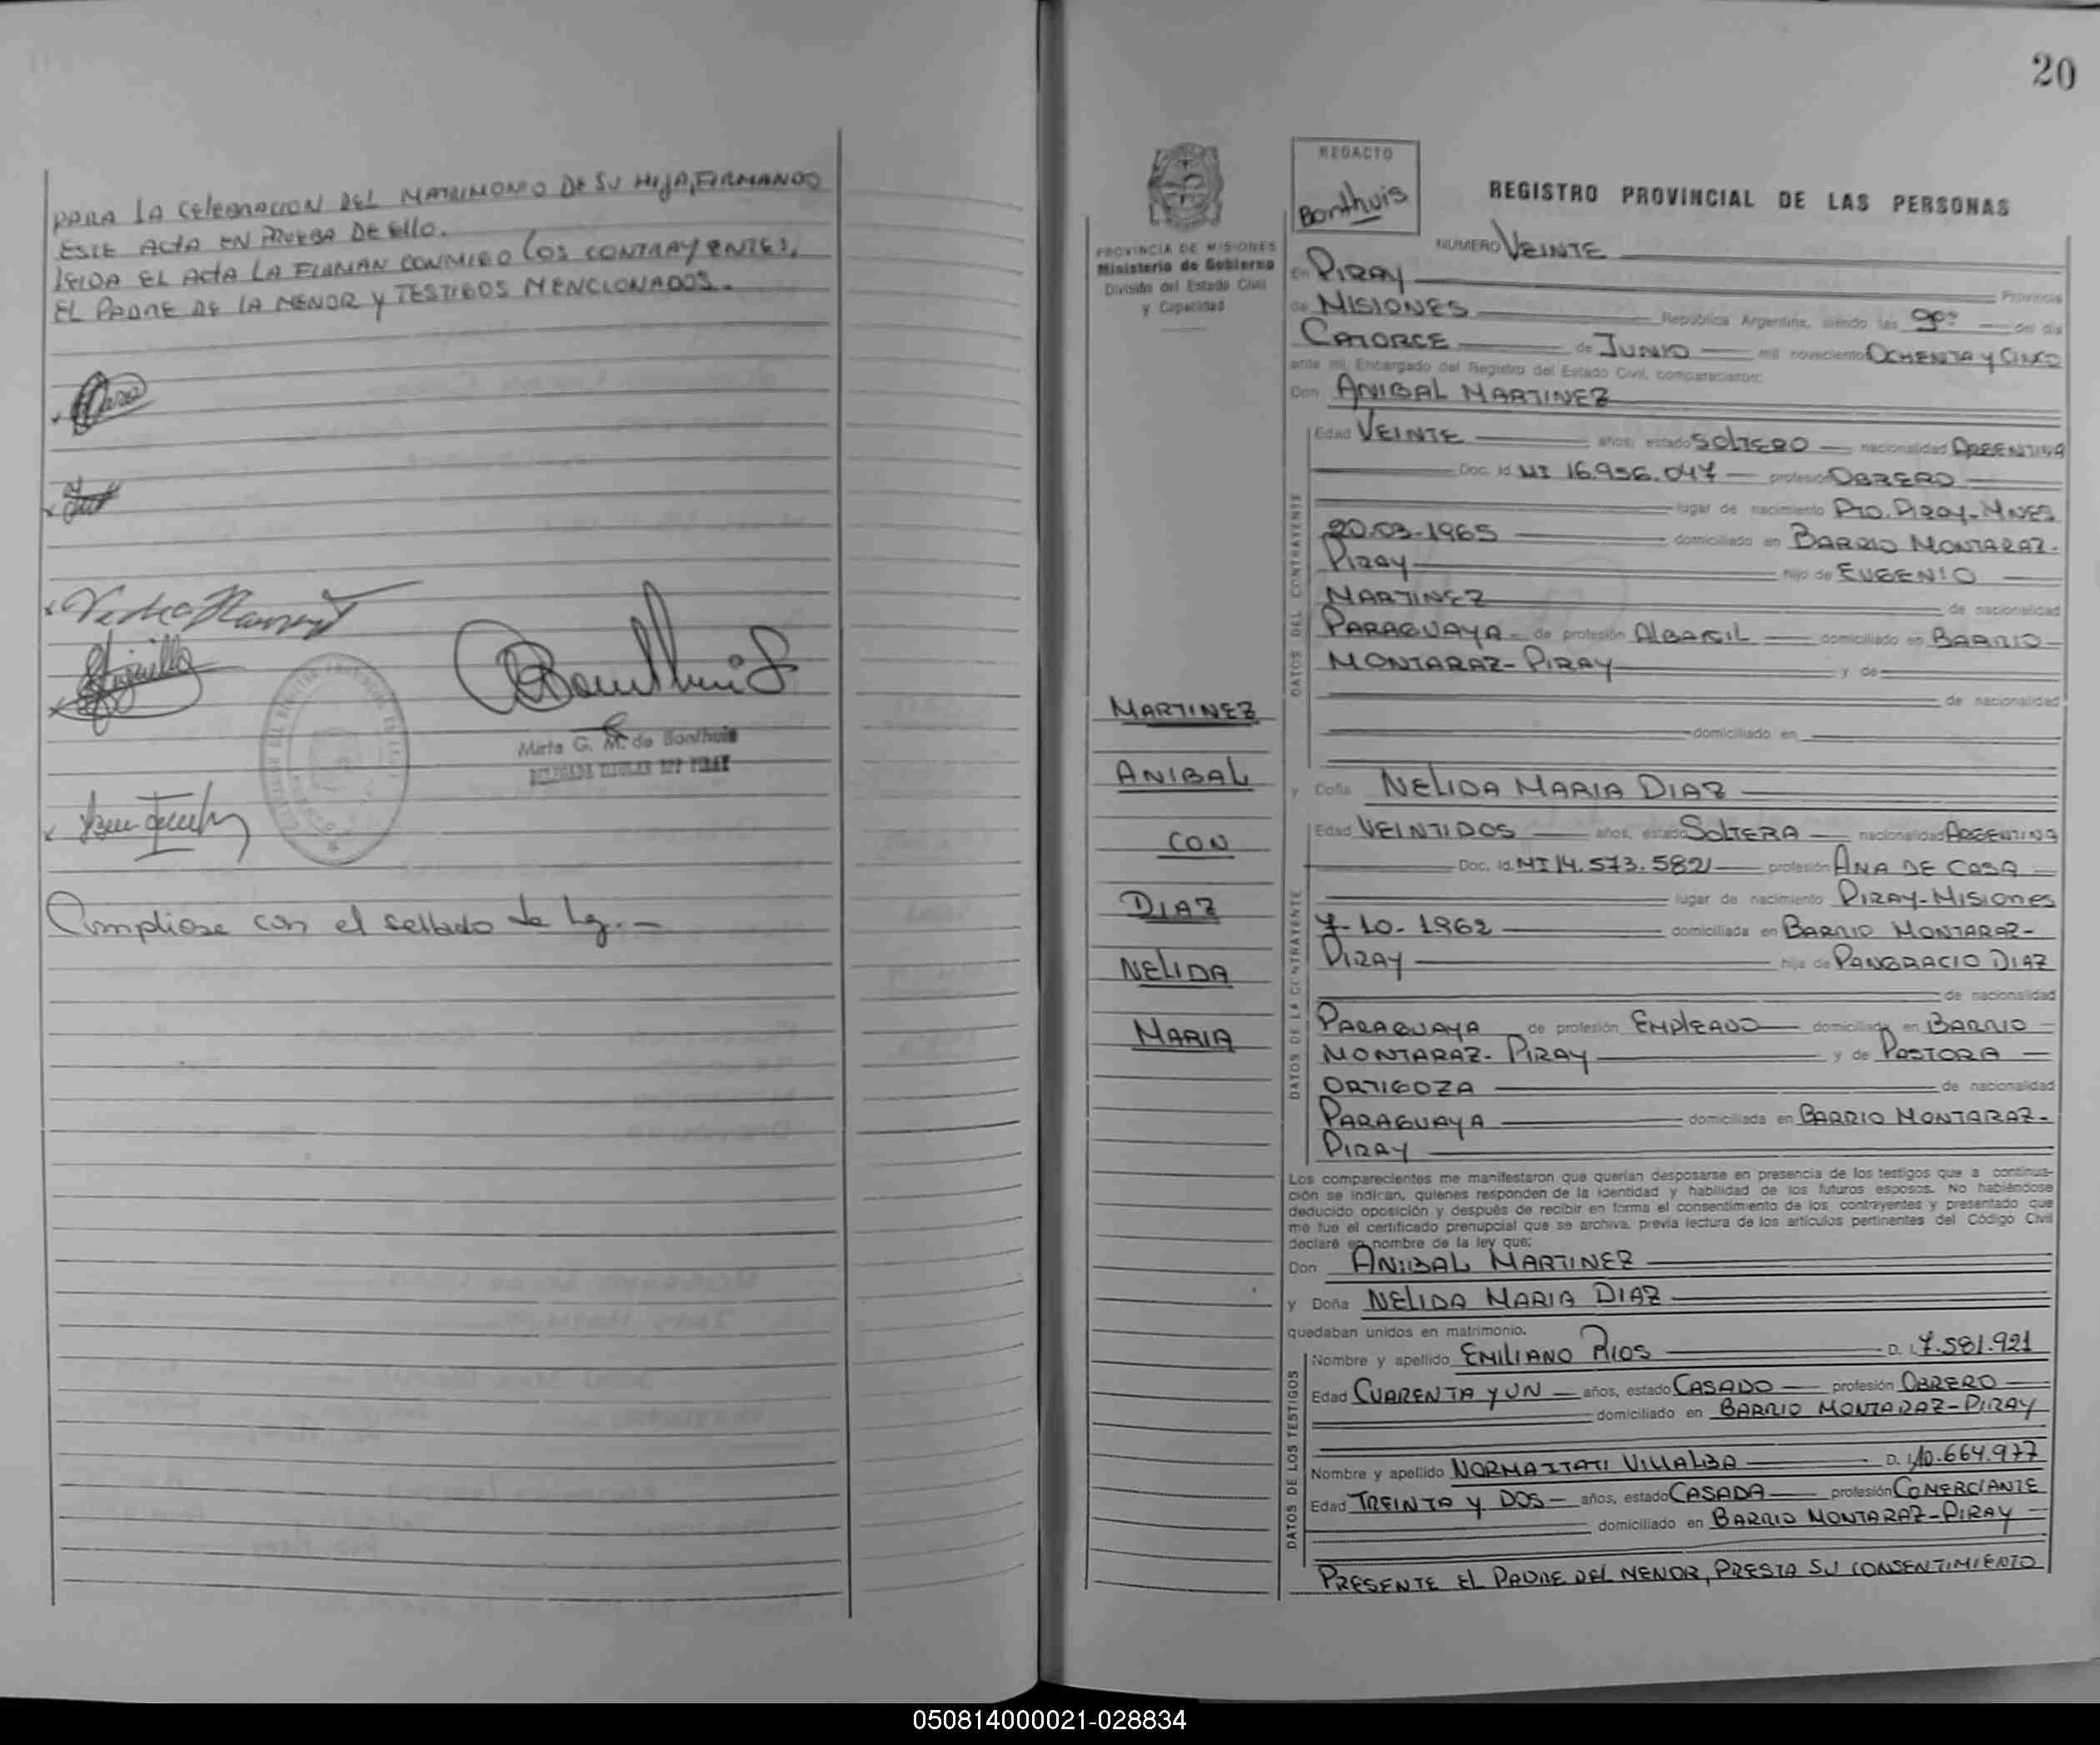 PARA LA CELEBRACION DEL MATRIMONIO DE SU HIJA, FIRMANDO
ESTE ACTA EN PRUEBA DE ELLO.
LEIDA EL ACTA LA FIRMAN CONMIGO LOS CONTRAYENTES,
EL PADRE DE LA MENOR Y TESTIGOS MENCIONADOS.
Mirta G. M. de Bonthuis
Cumpliose con el sellado de Ley.-
20
REDACTO
Bonthuis
REGISTRO PROVINCIAL DE LAS PERSONAS
PROVINCIA DE MISIONES
Ministerio de Gobierno
División del Estado Civil
y Capacidad
NUMERO VEINTE
En PIRAY Provincia
de MISIONES República Argentina, siendo las 9 del día
CATORCE de JUNIO mil novecientos OCHENTA Y CINCO
ante mí, Encargado del Registro del Estado Civil, comparecieron:
Don ANIBAL MARTINEZ
Edad VEINTE años, estado SOLTERO nacionalidad ARGENTINA
Doc. Id. MI 16.956.047 profesión OBRERO
lugar de nacimiento PTO. PIRAY-MNES
20.03-1965 domiciliado en BARRIO MONTARAZ-
PIRAY hijo de EUGENIO
MARTINEZ de nacionalidad
PARAGUAYA de profesión ALBAÑIL domiciliado en BARRIO
MONTARAZ-PIRAY y de
de nacionalidad
domiciliado en
DATOS DEL CONTRAYENTE
MARTINEZ
ANIBAL
CON
DIAZ
NELIDA
MARIA
y Doña NELIDA MARIA DIAZ
Edad VEINTIDOS años, estado SOLTERA nacionalidad ARGENTINA
Doc. Id. MI 14.573.582 profesión AMA DE CASA
lugar de nacimiento PIRAY-MISIONES
7-10-1962 domiciliada en BARRIO MONTARAZ-
PIRAY hija de PANGRACIO DIAZ
de nacionalidad
PARAGUAYA de profesión EMPLEADO domiciliado en BARRIO
MONTARAZ-PIRAY y de PASTORA
ORTIGOZA de nacionalidad
PARAGUAYA domiciliada en BARRIO MONTARAZ-
PIRAY
DATOS DE LA CONTRAYENTE
Los comparecientes me manifestaron que querían desposarse en presencia de los testigos que a continua-
ción se indican, quienes responden de la identidad y habilidad de los futuros esposos. No habiéndose
deducido oposición y después de recibir en forma el consentimiento de los contrayentes y presentado que
me fue el certificado prenupcial que se archiva, previa lectura de los artículos pertinentes del Código Civil
declaré en nombre de la ley que:
Don ANIBAL MARTINEZ
y Doña NELIDA MARIA DIAZ
quedaban unidos en matrimonio.
Nombre y apellido EMILIANO RIOS D. I. 7.581.921
Edad CUARENTA Y UN años, estado CASADO profesión OBRERO
domiciliado en BARRIO MONTARAZ-PIRAY
Nombre y apellido NORMA ITATI VILLALBA D. I. 10.664.977
Edad TREINTA Y DOS años, estado CASADA profesión COMERCIANTE
domiciliado en BARRIO MONTARAZ-PIRAY
DATOS DE LOS TESTIGOS
PRESENTE EL PADRE DEL MENOR, PRESTA SU CONSENTIMIENTO
050814000021-028834